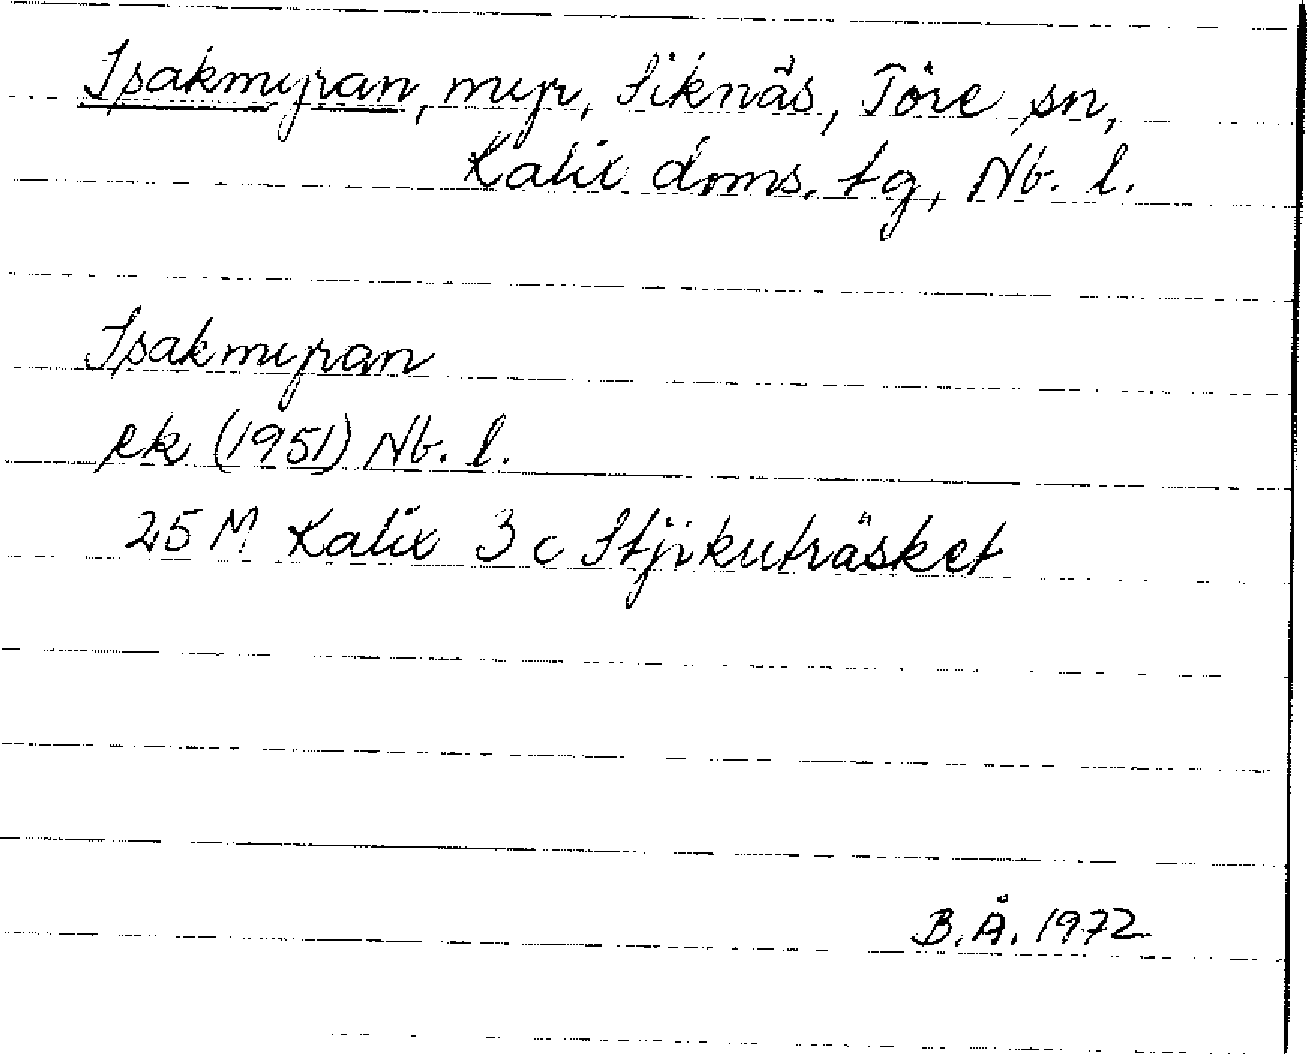 Isakmyran, myr, Siknäs, Töre sn,
Kalix doms. tg, Nb. l.
Isakmyran
ek (1951) Nb. l.
25 M Kalix 3 c Stjikuträsket
B.Å. 1972